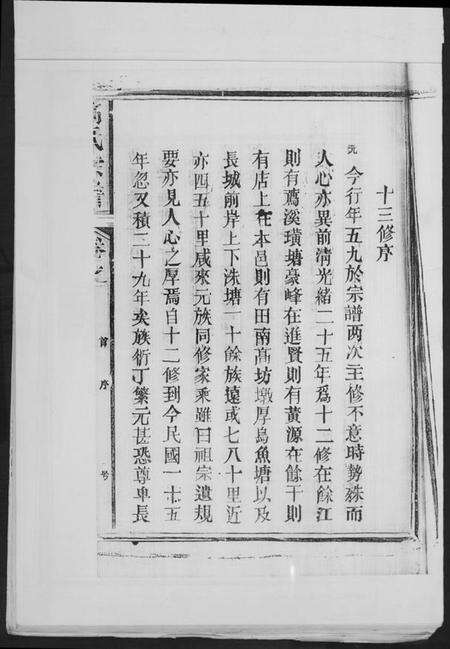 十三修序
元今行年五九於宗譜两次主修不意時勢殊而
人心亦異前清光緒二十五年爲十二修在餘江
則有鳶溪璜塘豪峰在進賢則有黃源在餘干則
有店上在本邑則有田南高坊墩厚烏魚塘以及
長城前岸上下洙塘一十餘族遠或七八十里近
亦四五十里咸來元族同修家乘雖曰祖宗遺規
要亦見人心之厚焉自十二修到今民國一十五
年忽又積二十九年矣族衍丁繁元甚恐尊卑長
氏宗譜
首序
号